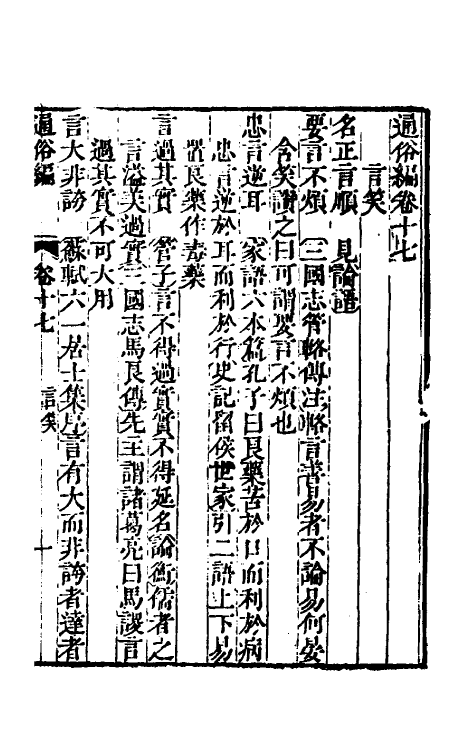 通俗編卷十七
言笑
名正言順 見論語
要言不煩 三國志管輅傳注輅言善易者不論易何晏
含笑讚之曰可謂要言不煩也
忠言逆耳 家語六本篇孔子曰良藥苦於口而利於病
忠言逆於耳而利於行史記留侯世家引二語上下易
置良藥作毒藥
言過其實 管子言不得過實實不得延名論衡儒者之
言溢美過實三國志馬良傳先主謂諸葛亮曰馬謖言
過其實不可大用
言大非誇 蘇軾六一居士集序言有大而非誇者達者
通俗編 卷十七 言笑 一